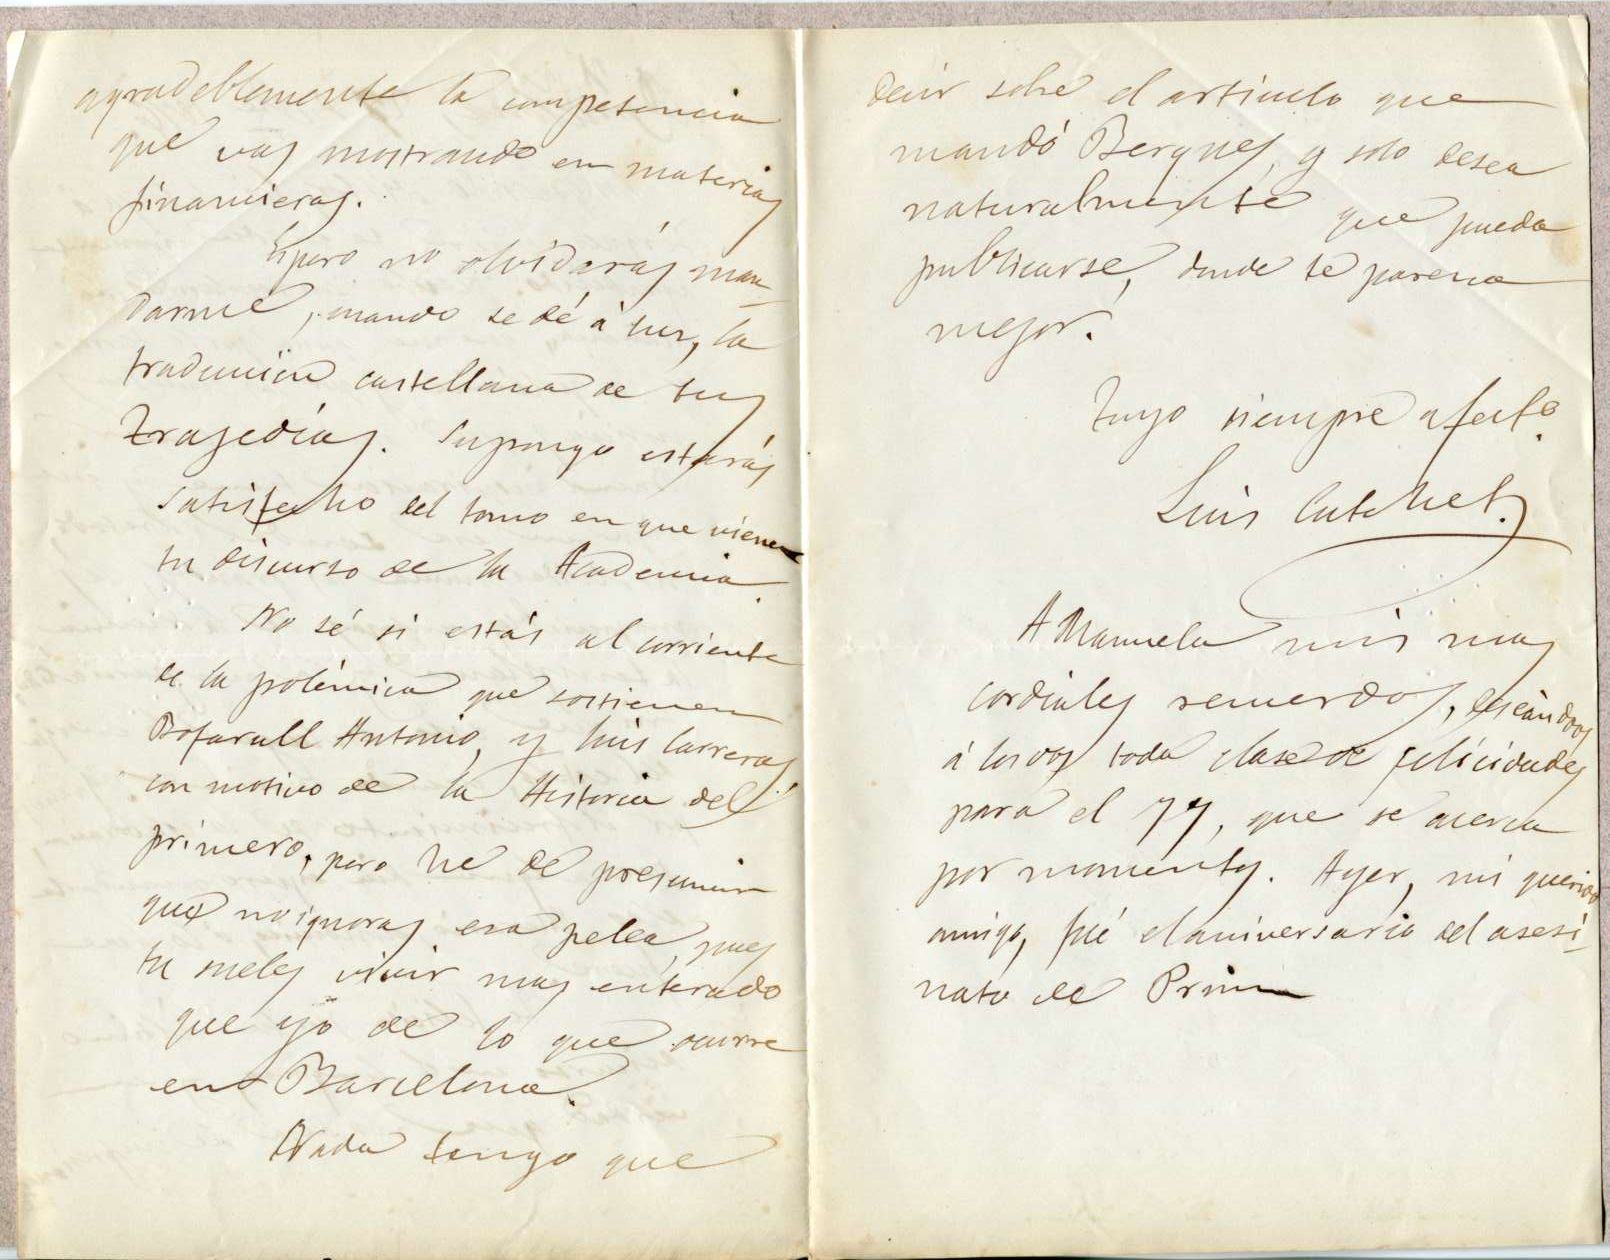 agradeblemente la competencia
que vas mostrando en materias
financieras.
Espero no olvidarás man-
darme, cuando se dé á luz, la
traduccion castellana de tus
Tragedias. Supongo estarás
satisfecho del tomo en que viene
tu discurso de la Academia.
No sé si estás al corriente
de la polémica que sostienen
Bofarull Antonio, y Luis Carreras
con motivo de la Historia del
primero, pero he de presumir
que no ignoras esa pelea, pues
tu sueles vivir mas enterado
que yo de lo que ocurre
en Barcelona.
Nada tengo que
decir sobre el articulo que
mandó Bergnes, y solo desea
naturalmente que pueda
publicarse, donde te parezca
mejor.
Tuyo siempre afect.o
Luis Cutchet.
A Manuela mis mas
cordiales recuerdos, deseándoos
á los dos toda clase de felicidades
para el 77, que se acerca
por momentos. Ayer, mi querido
amigo, fué el aniversario del asesi-
nato de Prim